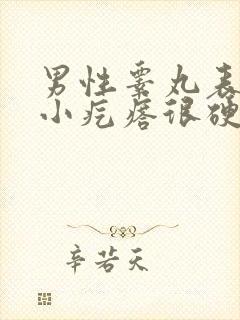 男性睾丸表
小疙瘩很硬
辛若天